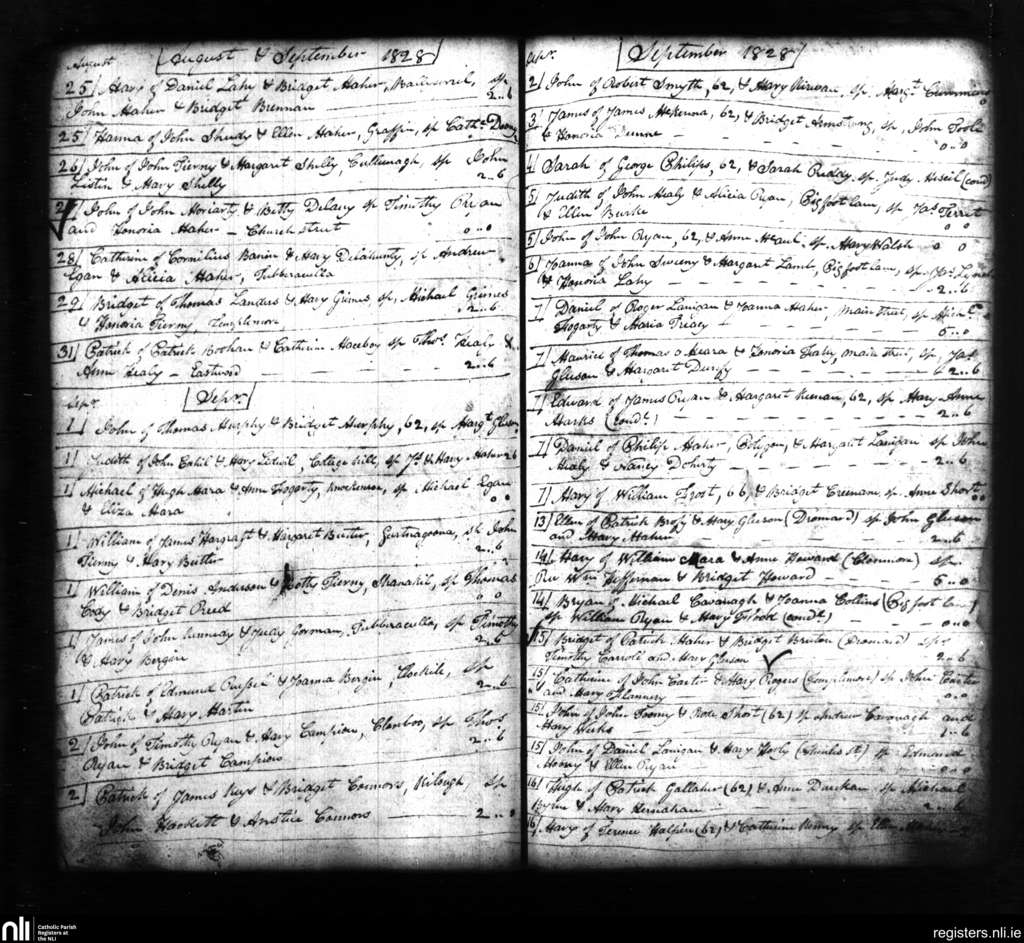 August
August & September 1828
25 Mary of Daniel Lahy & Bridget Maher, sp
John Maher & Bridget Brennan 2..6
25 Hanna of John Shudy & Ellen Maher, Graffin, sp Cath.
26 John of John Tierny & Margaret Shelly, Cullenagh, sp John
Listin & Mary Shelly 2..6
John of John Moriarty & Betty Delany sp Timothy Ryan
and Honoria Maher – Church street 0..0
28 Catherine of Cornilius Banin & Mary Delahunty, sp Andrew
Egan & Alicia Maher, Tubberavilla
29 Bridget of Thomas Landers & Mary Grimes, sp, Michael Grimes
& Honoria Tierny, Templemore 2..6
31 Patrick of Patrick Boohan & Catherine sp Thos. Healy &
Anne Healy – Eastwood 2..6
Sepr.
Sepr.
1 John of Thomas Murphy & Bridget Murphy, 62, sp Margt. Gleeson
1 Judith of John Cahil & Mary, Cottage hill, sp Js. & Mary Maher 2 6
1 Michael of Hugh Mara & Anne Fogarty, sp Michael Egan
& Eliza Mara 0 0
1 William of James Hargraft & Margaret Butler, Gurtnagoona, sp John
Tierny & Mary Butler 2..6
1 William of Denis Anderson & Betty Tierny, Shanakil, sp Thomas
Cody & Bridget Reed 0 0
1 James of John Kennedy & Judy Gorman, Tubberavilla, sp Timothy
& Mary Bergin 2..6
1 Patrick of Edmund Russel & Joanna Bergin, Clockile, sp
Patrick & Mary Martin 2..6
2 John of Timothy Ryan & Mary Campion, Clonboo, sp Thos
Ryan & Bridget Campion 2..6
2 Patrick of James Keys & Bridget Connors, Kilough, sp
John Hackett & Anstie Connors 2..0
Sepr.
September 1828
2 John of Robert Smyth, 62, & Mary Kirwan, sp. Margt. Cummins
3 James of James McKenna, 62, & Bridget Armstrong, sp, John Toole
& Honoria Dunne 0..0
4 Sarah of George Philips, 62, & Sarah Ruddy, sp. Judy (cond)
5 Judith of John Healy & Alicia Ryan, Pigfoot lane, sp Jas
& Ellen Burke 0..0
5 John of John Ryan, 62, & Anne, sp. Mary Walsh 0 0
6 Joanna of John Sweeny & Margaret Lamb, Pigfoot lane, sp
& Honoria Lahy 2..6
7 Daniel of Roger Lanigan & Joanna Maher, Main street, sp Mich
Fogarty & Maria Treacy 5..0
7 Maurice of Thomas o Meara & Honoria Healy, main street, sp, Jas
Gleeson & Margaret Durfy 2..6
7 Edward of James Ryan & Margaret Keenan, 62, sp Mary Anne
Marks (condt.) 2..6
7 Daniel of Philip Maher, Poligon, & Margaret Lanigan sp John
Healy & Nancy Doherty 2..6
7 Mary of William Frost, 66, & Bridget Creenan, sp Anne Short
13 Ellen of Patrick Brofy & Mary Gleeson (Dromard) sp John Gleeson
and Mary Maher 2..6
14 Mary of William Mara & Anne Howard (Clonmore) sp.
Rev Wm Heffernan & Bridget Howard 5..0
14 Bryan of Michael Cavanagh & Joanna Collins (Pigfoot lane)
sp William Ryan & Mary Flood (condt) 0..0
15 Bridget of Patrick Maher & Bridget Breulon (Dromard) sp.
Timothy Carroll and Mary Gleeson 2..6
15 Catherine of John Carter & Mary Rogers (Templemore) sp John Carter
and Mary Flannery 0..0
15 John of John Toomy & Rose Short (62) sp Andrew Cavanagh and
Mary Weeks 2..6
15 John of Daniel Lanigan & Mary (Church st) sp Edmund
& Ellen Ryan 0..0
16 Hugh of Patrick Gallaher (62) & Anne sp Michael
Byrne & Mary Kernahan 2..6
16 Mary of Terence Halpin (62) & Catherine Kenny sp Ellen
nli
Catholic Parish
Registers at
the NLI
registers.nli.ie